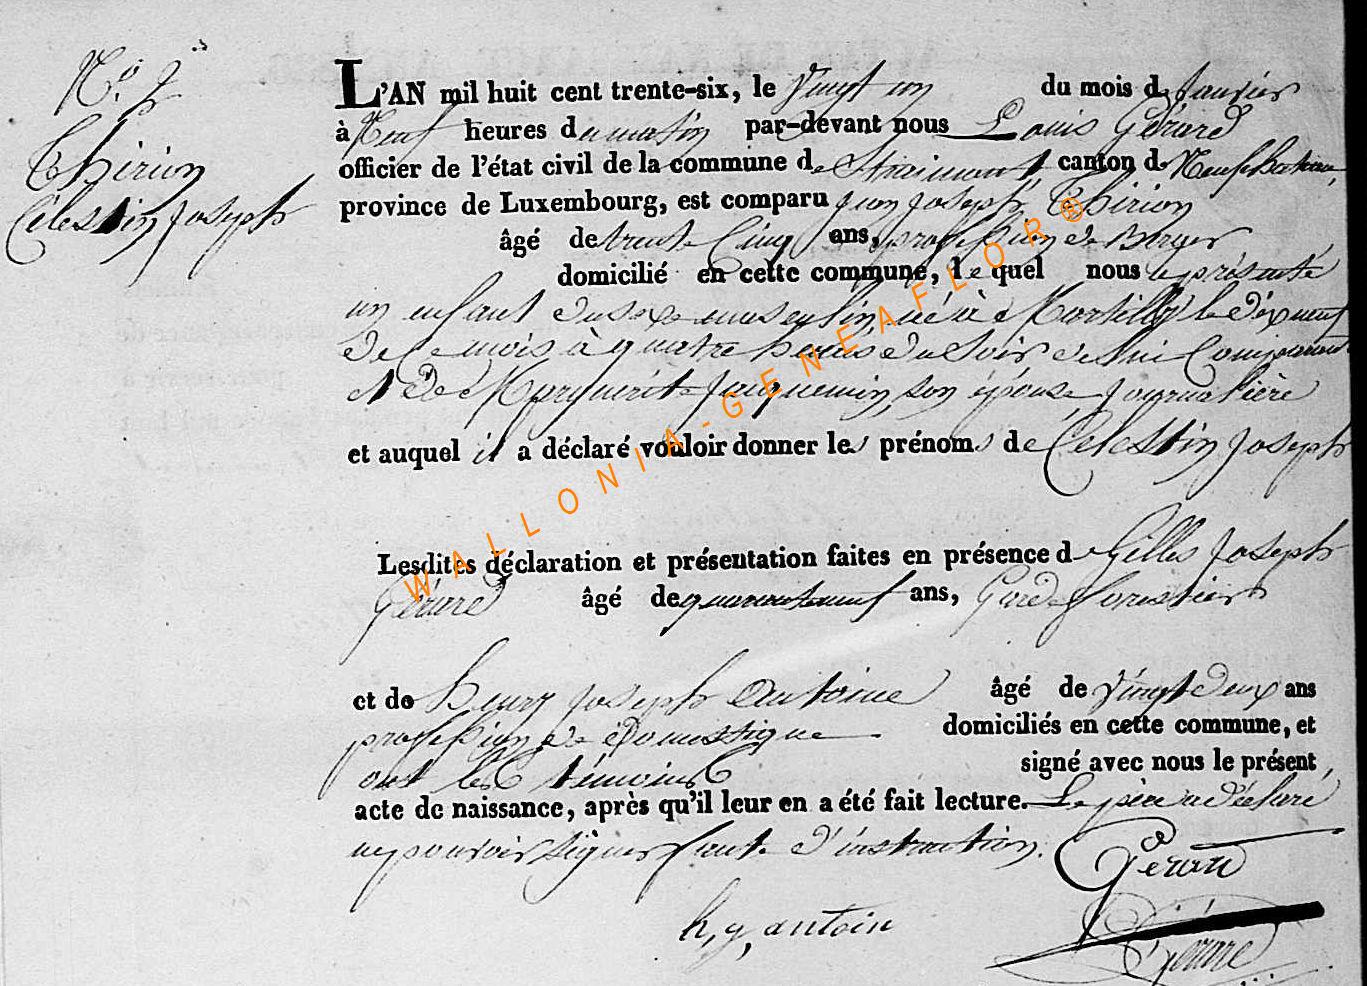 N.o 2
Thirion
Célestin Joseph
L'AN mil huit cent trente-six, le Vingt un du mois de Janvier
à Neuf heures du matin par-devant nous Louis Gérard
officier de l'état civil de la commune de Straimont canton de Neufchateau,
province de Luxembourg, est comparu Jean Joseph Thirion
âgé de trente Cinq ans, profession de Berger
domicilié en cette commune, lequel nous a présenté
un enfant du sexe masculin, né à Martilly le
de Ce mois à quatre heures du Soir de lui Comparant
et de Marguerite Jacquemin, son épouse Journalière
et auquel il a déclaré vouloir donner les prénoms de Célestin Joseph
Lesdites déclaration et présentation faites en présence de Gilles Joseph
Gérard âgé de quaranteneuf ans, Garde forestier
et de henry Joseph Antoine âgé de Vingt deux ans
profession de Domestique domiciliés en cette commune, et
ont les témoins signé avec nous le présent
acte de naissance, après qu'il leur en a été fait lecture. Le père a déclaré
ne pouvoir Signer faute d'instruction.
Gérard
h, g, antoin
Gérard
WALLONIA-GENEAFLOR®